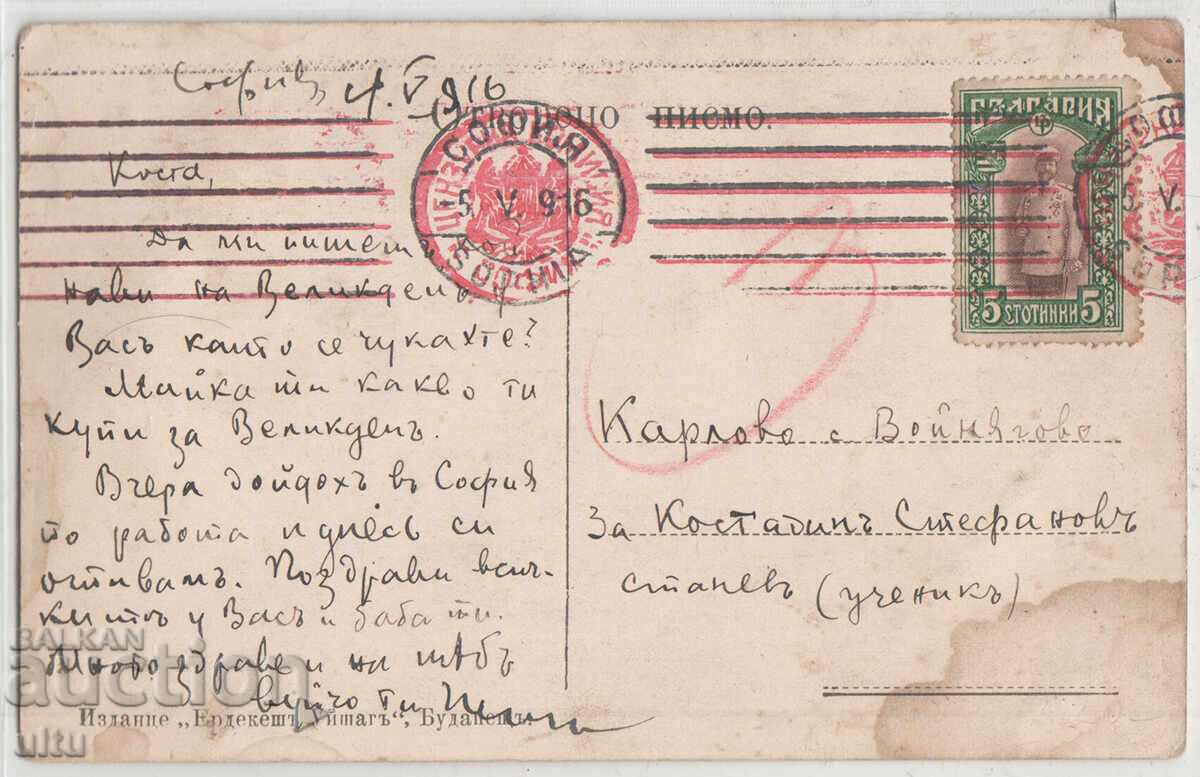 София, 4.V.916
Отворено писмо.
СОФИЯ
5. V. 916
SOFIA
БЪЛГАРИЯ
5 СТОТИНКИ 5
Коста,
Да ми пишеш
нави на Великденъ у
Васъ както се чукахте?
Майка ти какво ти
купи за Великденъ.
Вчера дойдохъ въ София
по работа и днесь си
отивамъ. Поздрави всич-
китѣ у Васъ и баба ти.
Много здраве и на тебъ
вуйчо ти
Карлово с. Войнягово
За Костадинъ Стефановъ
Станевъ (ученикъ)
Издание „Ердекешъ Уйшагъ“, Будапешъ.
BALKAN
auction
ultu